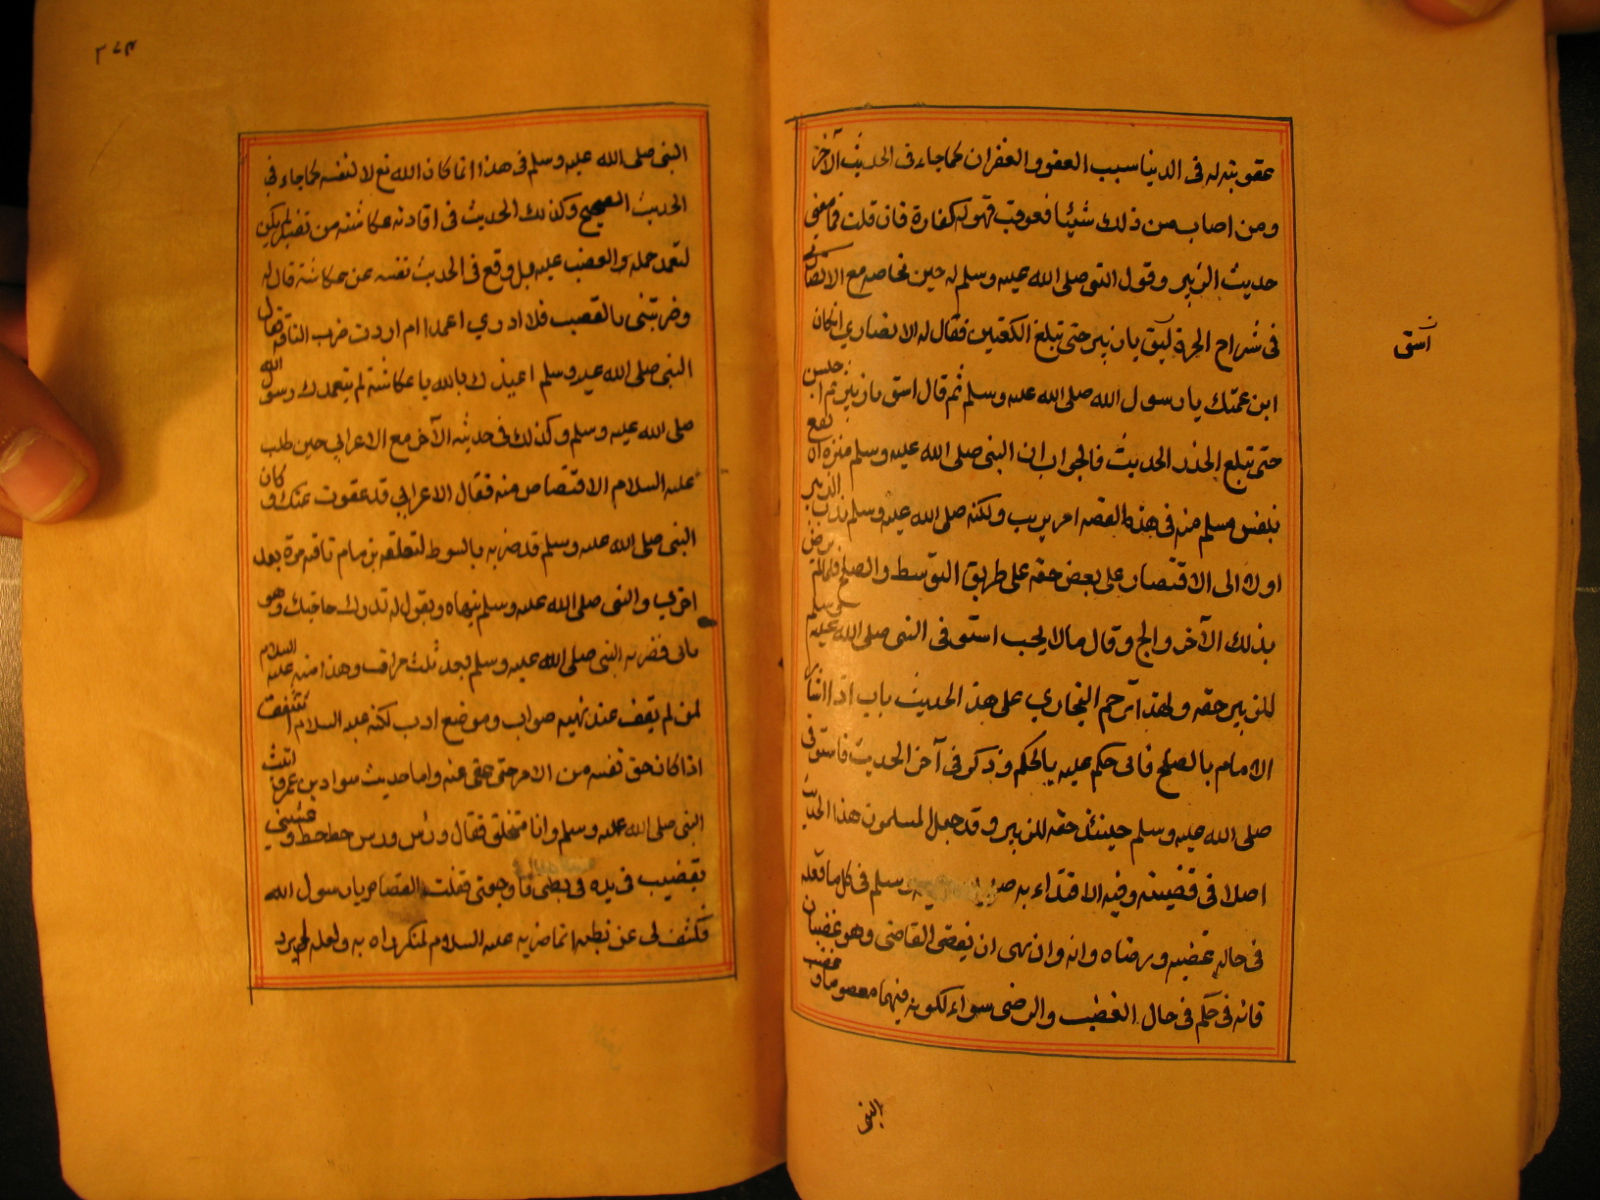 عقوبته له فى الدينا سبب العفو والغفران كما جاء فى الحديث الآخر
ومن اصاب من ذلك شيئا فعوقب فهو له كفارة فان قلت فما معنى
حديث الزبير وقول النبى صلى الله عليه وسلم له حين تخاصمه مع الانصارى
فى شراج الحرة اسق يا زبير حتى تبلغ الكعبين فقال له الانصاري ان كان
اسق
ابن عمتك يا رسول الله صلى الله عليه وسلم ثم قال اسق يا زبير ثم احبس
حتى تبلغ الجدر الحديث فالجواب ان النبى صلى الله عليه وسلم منزه ان يقع
بنفس مسلم منه فى هذه القصه امر يريب ولكنه صلى الله عليه وسلم ندب الزبير
اولا الى الاقتصار على بعض حقه على طريق التوسط والصلح فلما لم يرض
بذلك الآخر ولج وقال مالا يجب استوفى النبى صلى الله عليه وسلم
للزبير حقه ولهذا ترجم البخاري على هذا الحديث باب اذا اشار
الامام بالصلح فابى حكم عليه بالحكم وذكر فى آخر الحديث فاستوفى
صلى الله عليه وسلم حينئذ حقه للزبير وقد جعل المسلمون هذا الحديث
اصلا فى قضيته وفيه الاقتداء به صلى الله عليه وسلم فى كل ما فعله
فى حال غضبه ورضاه وانه وان نهى ان يقضى القاضى وهو غضبان
فانه فى حكم فى حال الغضب والرضى سواء لكونه فيهما معصوما وغضب
النبى
٣٧٤
النبى صلى الله عليه وسلم فى هذا انما كان الله تع لا لنفسه كما جاء فى
الحديث الصحيح وكذلك الحديث فى اقادته عكاشته من نفسه لم يكن
لتعمد حمله والغضب عليه بل وقع فى الحديث نفسه عن عكاشة قال له
وضربتنى بالقضيب فلا ادري اعمدا ام اردت ضرب الناقة فقال
النبى صلى الله عليه وسلم اعيذك بالله يا عكاشة لم يتعمدك رسول الله
صلى الله عليه وسلم وكذلك فى حديثه الآخر مع الاعرابي حين طلب
عليه السلام الاقتصاص منه فقال الاعرابي قد عفوت عنك وكان
النبى صلى الله عليه وسلم قد ضربه بالسوط لتعلقه بزمام ناقته مرة بعد
اخرى والنبى صلى الله عليه وسلم ينهاه ويقول له تدرك حاجتك وهو
يابى فضربه النبى صلى الله عليه وسلم بعد ثلث مرات وهذا منه عليه السلام
لمن لم يقف عند نهيه صواب وموضع ادب لكنه عليه السلام اشفق
اذا كان حق نفسه من الامر حتى عفى عنه واما حديث سواد بن عمرو اتيت
النبى صلى الله عليه وسلم وانا متخلق فقال ورس ورس حط حط وغشينى
بقضيب فى يده فى بطنى فاوجعنى فقلت القصاص يا رسول الله
فكشف لى عن بطنه انما ضربه عليه السلام لمنكر راه به ولعله لم يرد